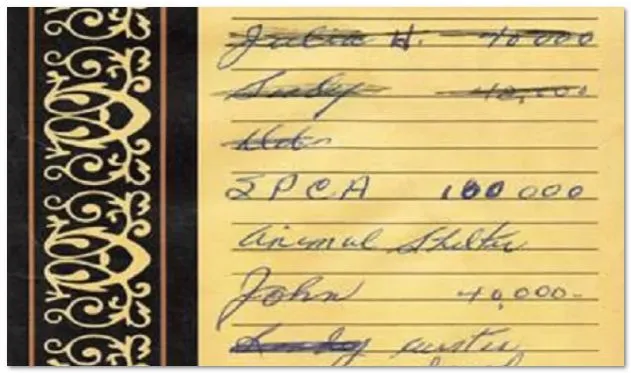 Julia H. 40 000
40,000
SPCA 100 000
animal Shelter
John 40,000-